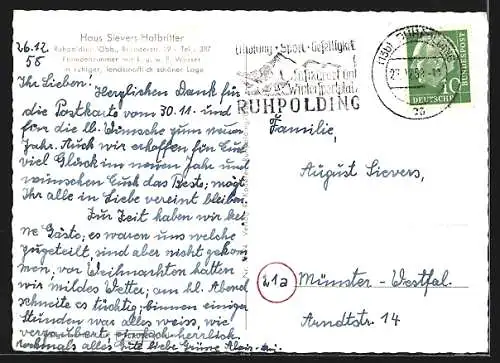 Haus Sievers-Halbritter
Ruhpolding, Obb., Brandnerstr. 19 - Tel. 387
Fremdenzimmer mit k. u. w. fl. Wasser
in ruhiger, landschaftlich schöner Lage
26.12
Ihr Lieben! Herzlichen Dank für
die Postkarte vom 30.11. und
für die lb. Wünsche zum neuen
Jahr. Auch wir erhoffen für Euch
viel Glück im neuen Jahr und
wünschen Euch das Beste; mögt
Ihr alle in Liebe vereint bleiben.
Zur Zeit haben wir kei-
ne Gäste; es waren uns welche
zugeteilt, sind aber nicht gekom-
men, vor Weihnachten hatten
wir mildes Wetter; am hl. Abend
schneite es tüchtig; binnen einiger
Stunden war alles weiss, wie
verzaubert herrlich
nochmals alles Gute liebe Grüsse
Erholung · Sport · Geselligkeit
Luftkurort und
Wintersportplatz
RUHPOLDING
(13b) RUHPOLDING
10
DEUTSCHE BUNDESPOST
Familie,
August Sievers,
21a
Münster - Westfal.
Arndtstr. 14